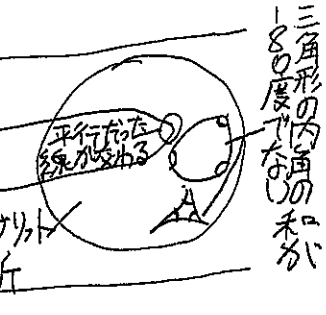 三角形の内角の和が
180度でない
平行だった
線が交わる